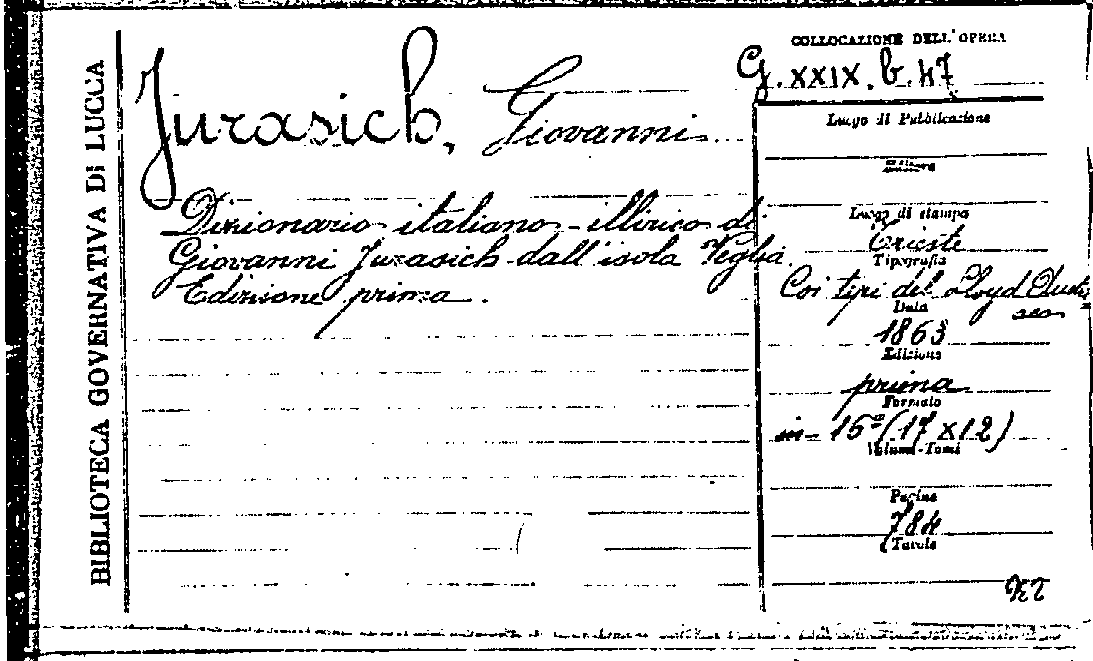 BIBLIOTECA GOVERNATIVA DI LUCCA
Jurasich, Giovanni
Dizionario italiano-illirico di
Giovanni Jurasich dall'isola Veglia.
Edizione prima.
COLLOCAZIONE DELL'OPERA
G. XXIX. b. 47
Luogo di Pubblicazione
Luogo di stampa
Trieste
Tipografia
Coi tipi del Lloyd Austr
Data
1863
Edizione
prima
Formato
in-16° (17x12)
Volumi-Tomi
Pagine
784
Tavole